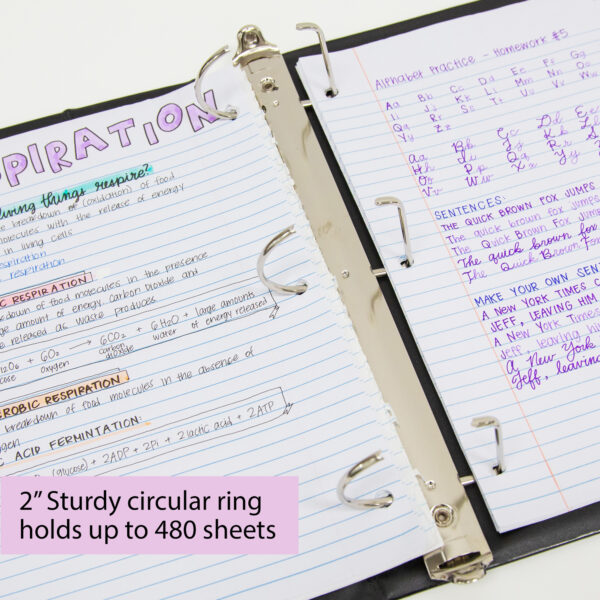 PIRATION
living things respire?
breakdown of (oxidation) of food
molecules with the release of energy
in living cells
respiration
respiration
C RESPIRATION
down of food molecules in the presence
amount of energy. Carbon Dioxide and
released as waste produces
+ 6O2 → 6CO2 + 6H2O + large amounts
oxygen carbon dioxide water of energy released
EROBIC RESPIRATION
breakdown of food molecules in the absence of
ACID FERMINTATION:
(glucose) + 2ADP + 2Pi → 2lactic acid + 2ATP
Alphabet Practice - Homework #5
Aa Bb Cc Dd Ee Ff Gg
Ii Jj Kk Ll Mm Nn
Qq Rr Ss Tt Uu Vv
Yy Zz
Aa Bb Cc Dd
Hh Ii Jj Kk
Or Pp Qq Rr
Vv Ww Xx Yy
SENTENCES:
THE QUICK BROWN FOX JUMPS
The quick brown fox jumps
The Quick Brown Fox Jumps
The quick brown fox
The Quick Brown Fox
MAKE YOUR OWN SENT
A NEW YORK TIMES
JEFF, LEAVING HIM
A New York Times
Jeff, leaving him
A New York
Jeff, leaving
2” Sturdy circular ring
holds up to 480 sheets